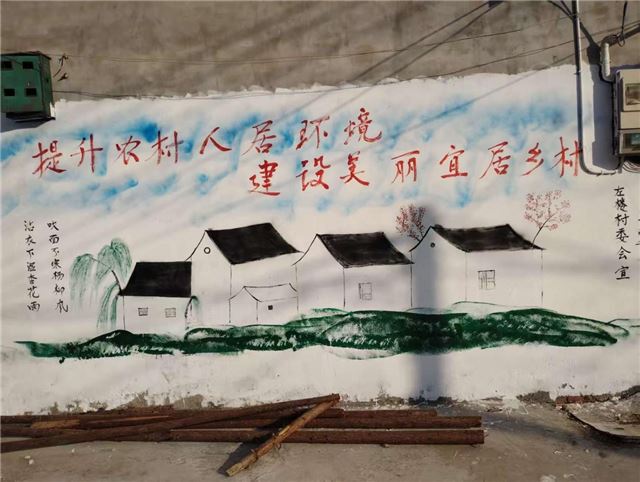 提升农村人居环境
建设美丽宜居乡村
吹面不寒杨柳风
沾衣不湿杏花雨
左楼村委会宣